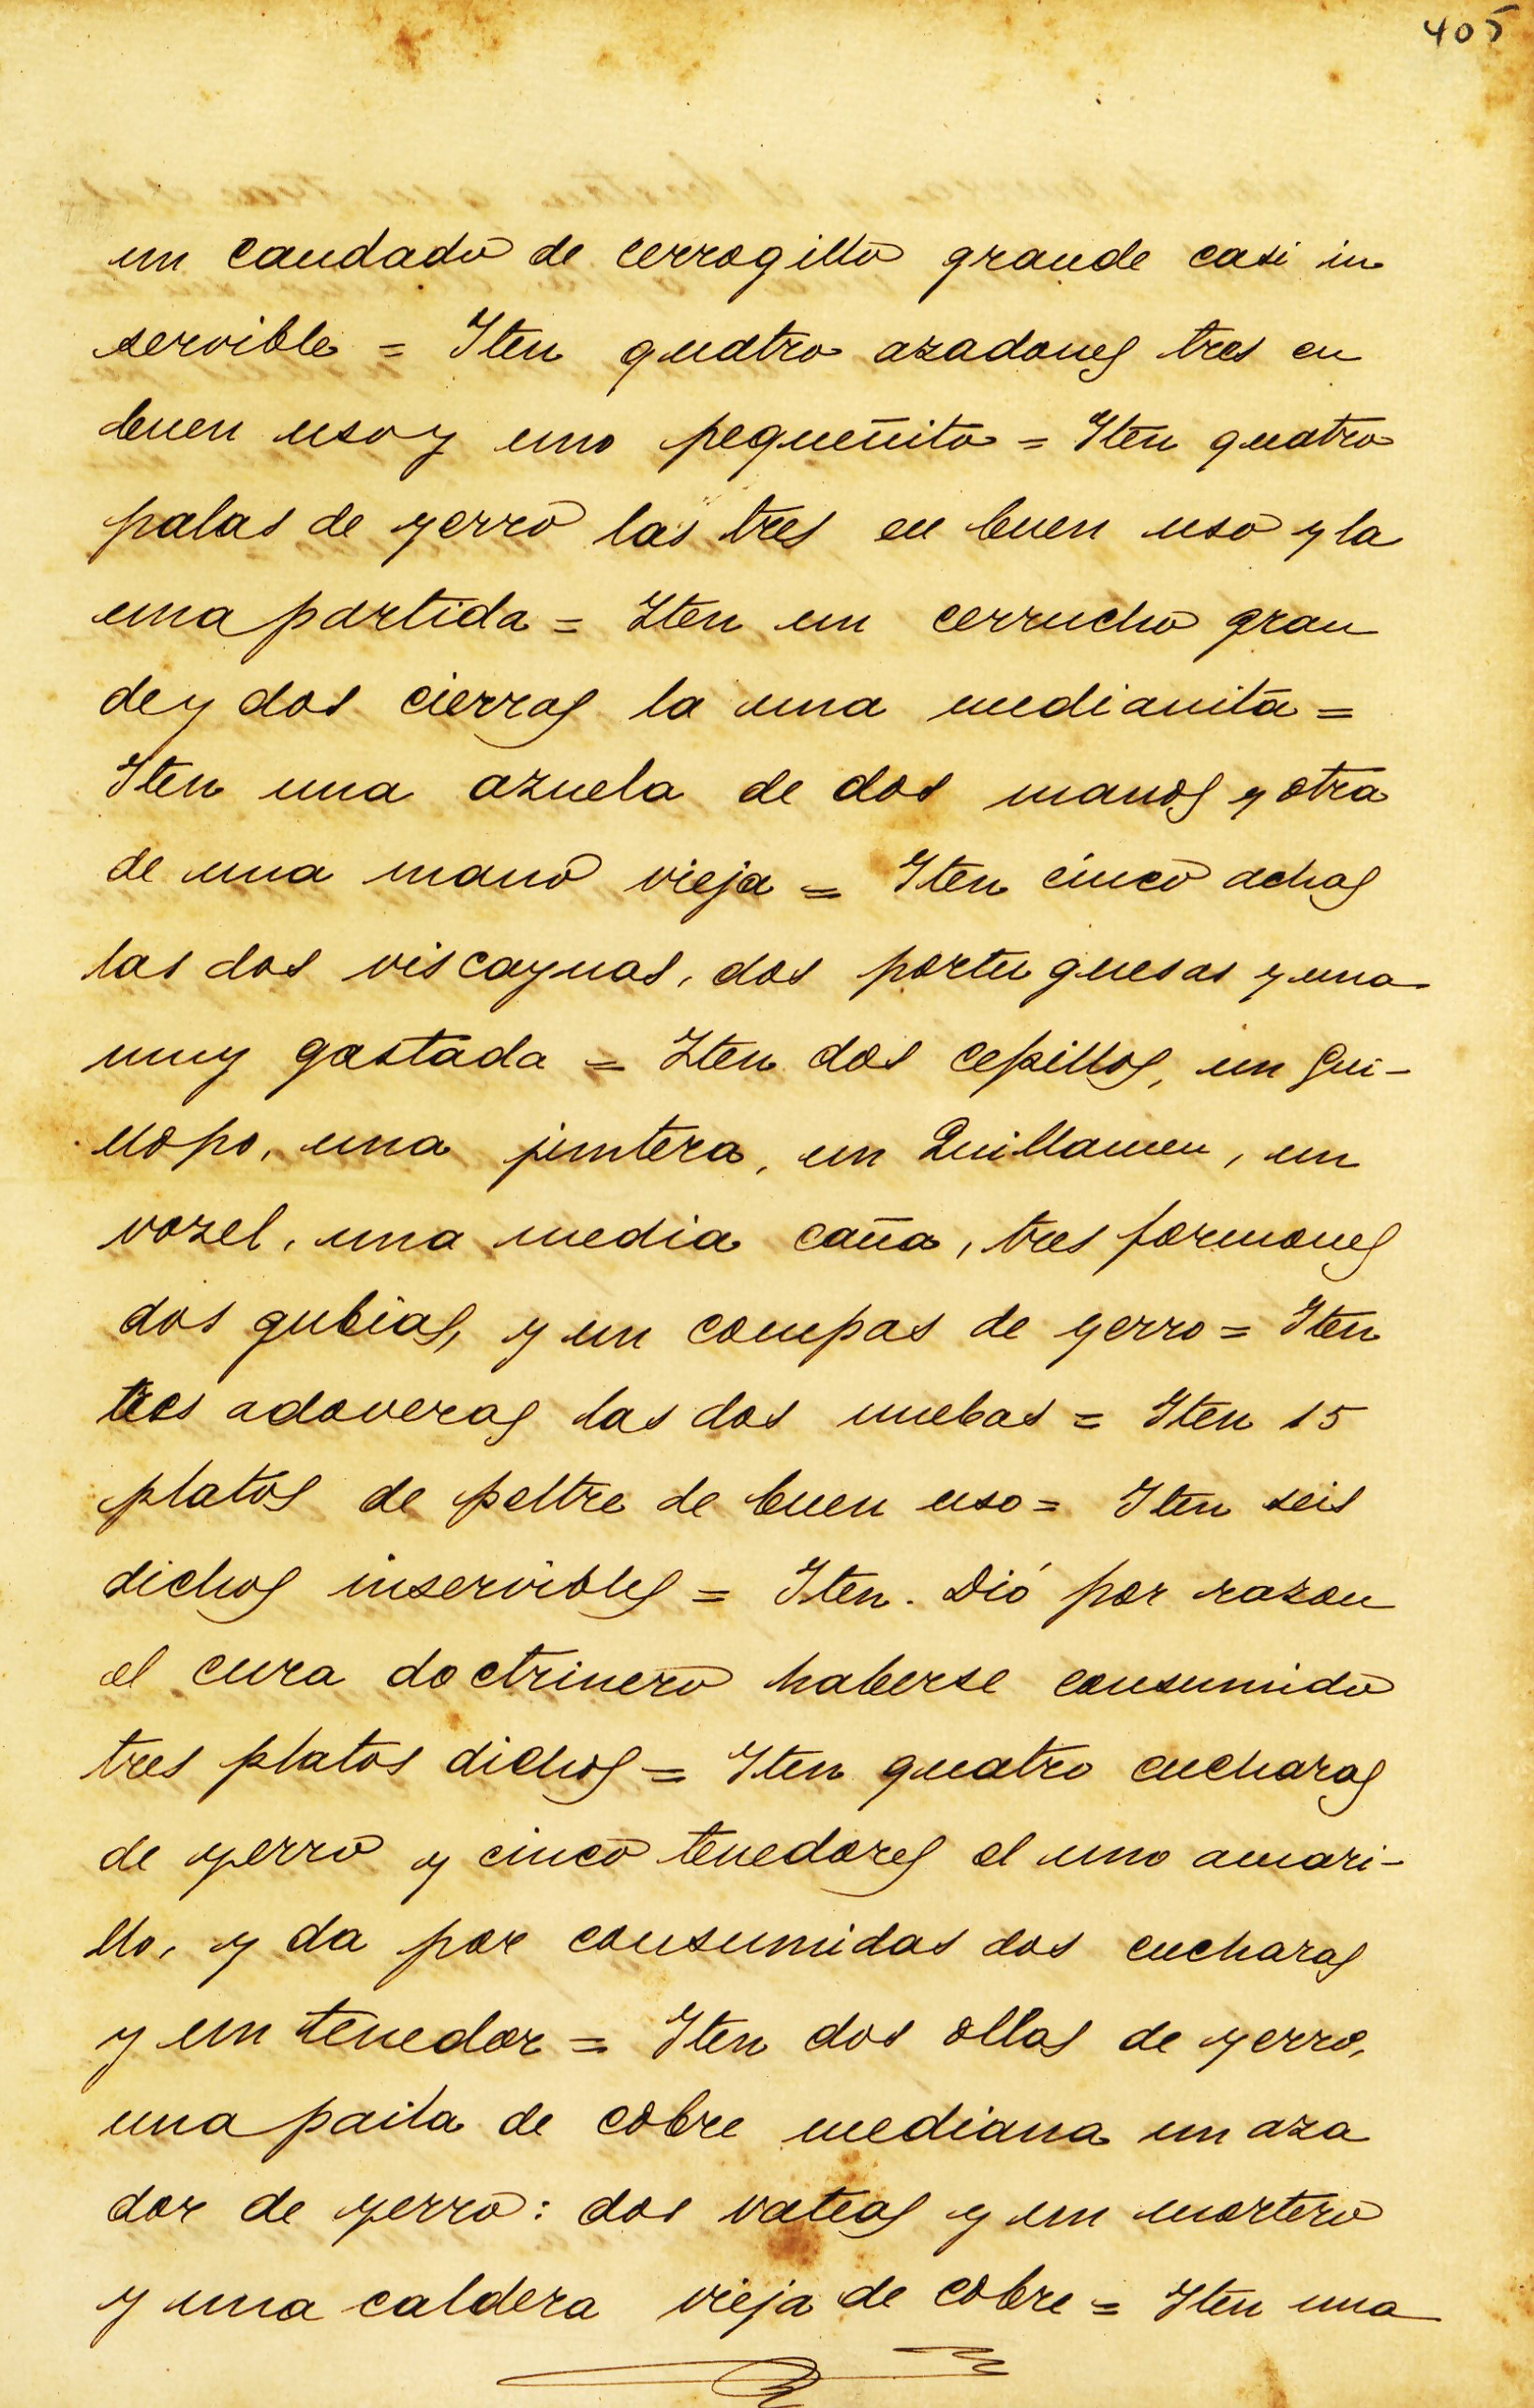 405
un candado de cerrogillo grande casi in
servible = Iten quatro azadones tres en
buen uso y uno pequeñito = Iten quatro
palas de yerro las tres en buen uso y la
una partida = Iten un cerrucho gran
de y dos cierras la una medianita =
Iten una azuela de dos manos y otra
de una mano vieja = Iten cinco achas
las dos viscaynas, dos portuguesas y una
muy gastada = Iten dos cepillos, un Gui-
llopo, una juntera, un Quillamen, un
vozel, una media caña, tres formones
dos gubias, y un compas de yerro = Iten
tres adoveras las dos nuebas = Iten 15
platos de peltre de buen uso = Iten seis
dichos inservibles = Iten. Dió por razon
el cura doctrinero haberse consumido
tres platos dichos = Iten quatro cucharas
de yerro y cinco tenedores el uno amari-
llo, y da por consumidas dos cucharas
y un tenedor = Iten dos ollas de yerro,
una paila de cobre mediana un aza
dor de yerro: dos vateas y un mortero
y una caldera vieja de cobre = Iten una